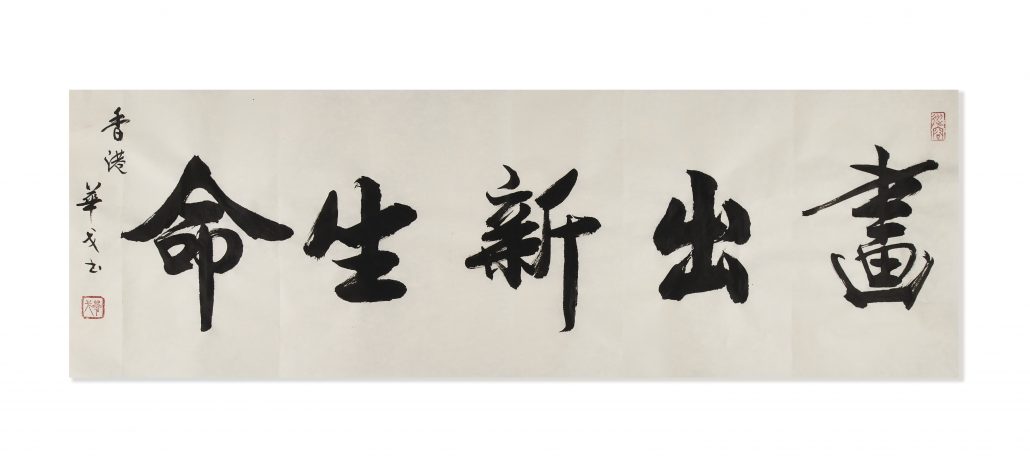 畫出新生命
香港
華戈书